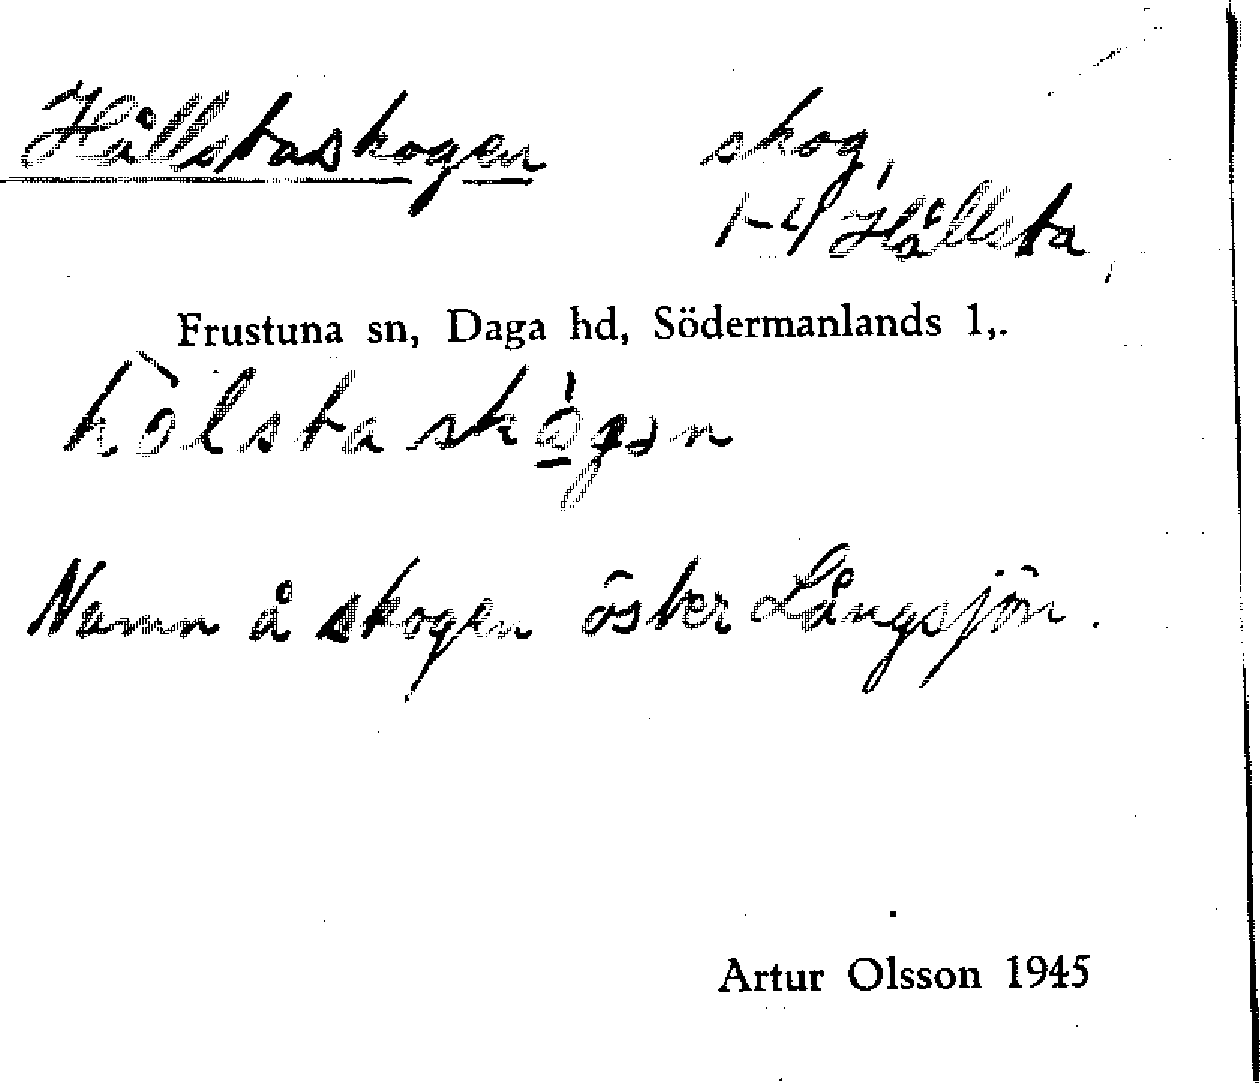 Hållstaskogen skog,
1-4 Hållsta
Frustuna sn, Daga hd, Södermanlands l,.
hòlsta skógən
Namn å skogen öster Långsjön.
Artur Olsson 1945